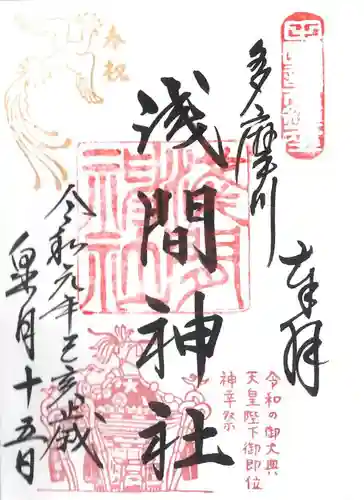 奉拝
多摩川
浅間神社
浅間神社
奉祝
令和の御大典
天皇陛下御即位
神幸祭
令和元年己亥歳
皐月十五日